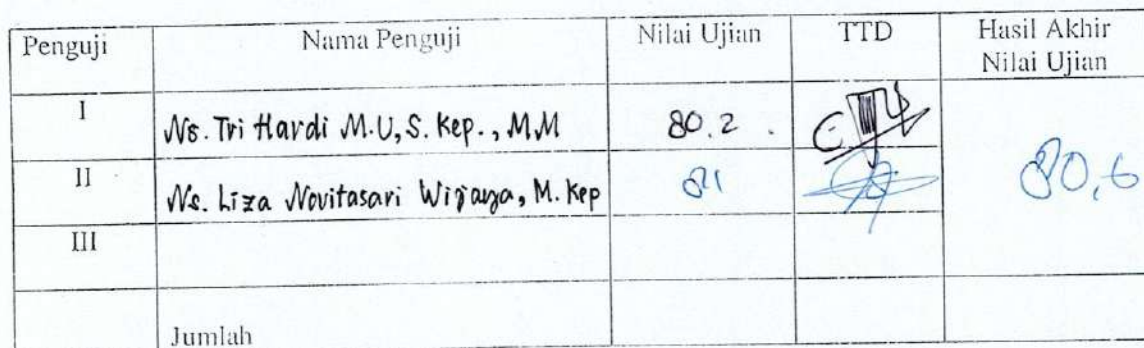 Penguji Nama Penguji Nilai Ujian TTD Hasil Akhir
Nilai Ujian
I Ns. Tri Hardi M.U, S. Kep., M.M 80.2
II Ns. Liza Novitasari Wijaya, M. Kep 81 80,6
III
Jumlah